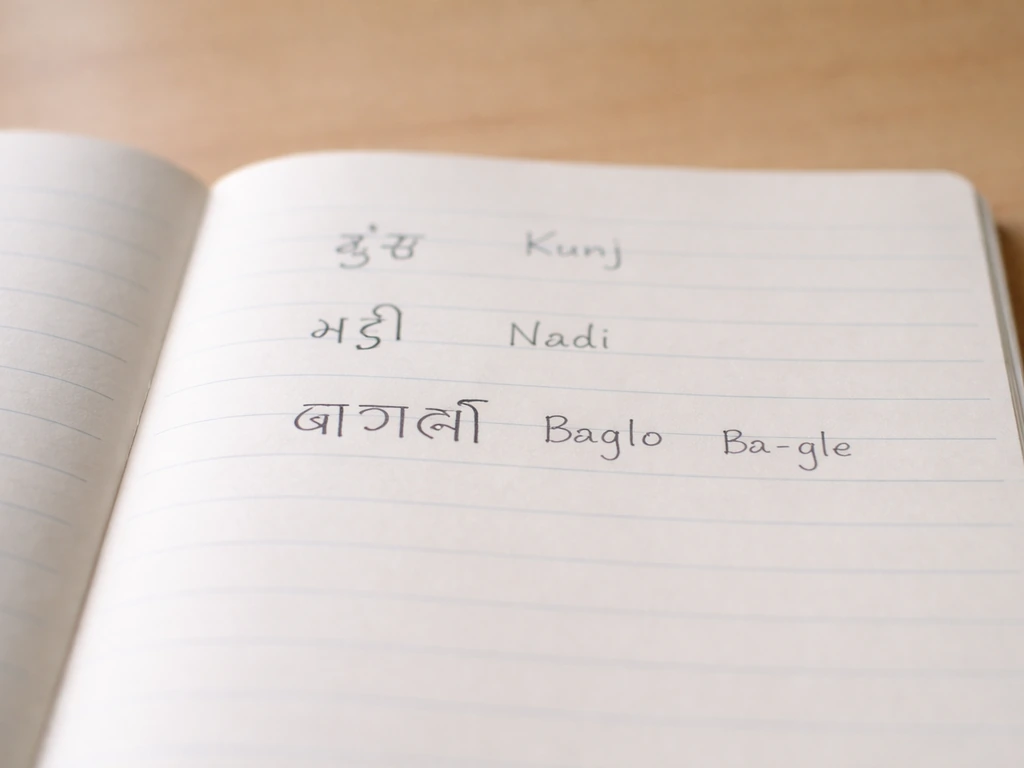 कुंस Kunj
मडी Nadi
Baglo Ba-gle